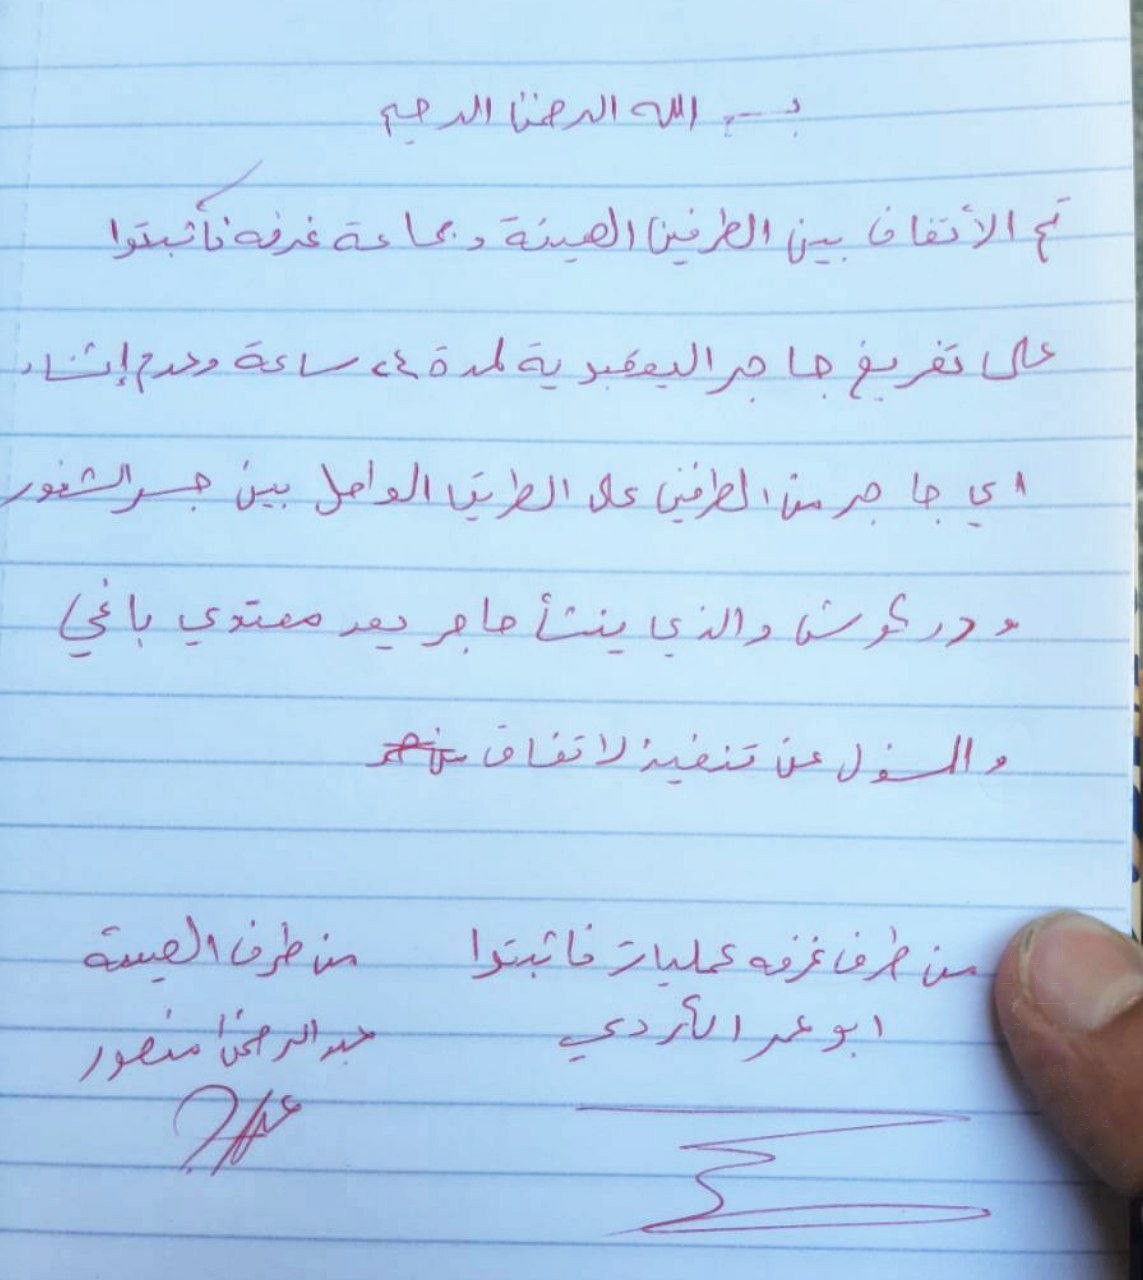 بسم الله الرحمن الرحيم
تم الأتفاق بين الطرفين الهيئة وجماعة غرفه فأثبتوا
على تفريغ حاجر اليعقبوية لمدة ٢٤ ساعة وعدم إنشاء
اي حاجر من الطرفين على الطريق الواصل بين جسر الشغور
و دركوش والذي ينشأ حاجر يعد معتدي باغي
والمسؤل عن تنفيذ لاتفاق
من طرف غرفه عمليات فاثبتوا من طرف الهيئة
ابو عمر الأردي عبد الرحمن منصور